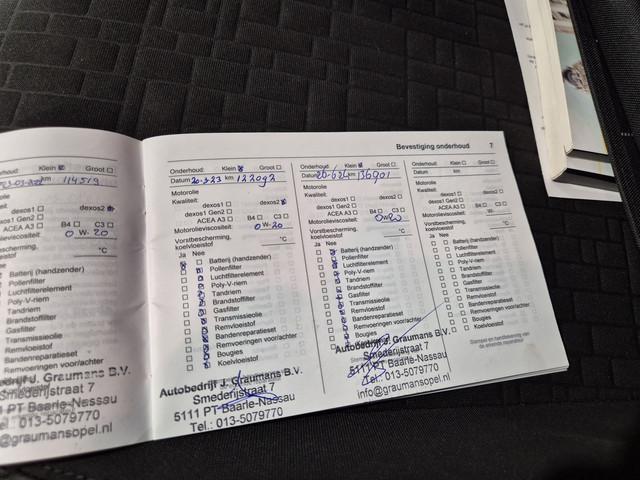 Bevestiging onderhoud 7
Klein Groot
km 114519
dexos2
B4 C3
0 W-20
°C
Batterij (handzender)
Pollenfilter
Luchtfilterelement
Poly-V-riem
Tandriem
Brandstoffilter
Gasfilter
Transmissieolie
Remvloeistof
Bandenreparatieset
Remvoeringen voor/achter
Bougies
Koelvloeistof
J. Graumans B.V.
Smederijstraat 7
5111 PT Baarle-Nassau
Tel.: 013-5079770
info@graumansopel.nl
Onderhoud: Klein Groot
Datum 20-3-23 km 122092
Motorolie
Kwaliteit:
dexos1 dexos2
dexos1 Gen2
ACEA A3 B4 C3
Motorolieviscositeit: 0 W-20
Vorstbescherming,
koelvloeistof °C
Ja Nee
Batterij (handzender)
Pollenfilter
Luchtfilterelement
Poly-V-riem
Tandriem
Brandstoffilter
Gasfilter
Transmissieolie
Remvloeistof
Bandenreparatieset
Remvoeringen voor/achter
Bougies
Koelvloeistof
Autobedrijf J. Graumans B.V.
Smederijstraat 7
5111 PT Baarle-Nassau
Tel.: 013-5079770
Onderhoud: Klein Groot
Datum 26-6-24 km 136901
Motorolie
Kwaliteit:
dexos1 dexos2
dexos1 Gen2
ACEA A3 B4 C3
Motorolieviscositeit: 0 W 20
Vorstbescherming,
koelvloeistof °C
Ja Nee
Batterij (handzender)
Pollenfilter
Luchtfilterelement
Poly-V-riem
Tandriem
Brandstoffilter
Gasfilter
Transmissieolie
Remvloeistof
Bandenreparatieset
Remvoeringen voor/achter
Bougies
Koelvloeistof
Autobedrijf J. Graumans B.V.
Smederijstraat 7
5111 PT Baarle-Nassau
Tel.: 013-5079770
info@graumansopel.nl
Onderhoud: Klein Groot
Datum km
Motorolie
Kwaliteit:
dexos1 dexos2
dexos1 Gen2
ACEA A3 B4 C3
Motorolieviscositeit: W-
Vorstbescherming,
koelvloeistof °C
Ja Nee
Batterij (handzender)
Pollenfilter
Luchtfilterelement
Poly-V-riem
Tandriem
Brandstoffilter
Gasfilter
Transmissieolie
Remvloeistof
Bandenreparatieset
Remvoeringen voor/achter
Bougies
Koelvloeistof
Stempel en handtekening van
de erkende reparateur